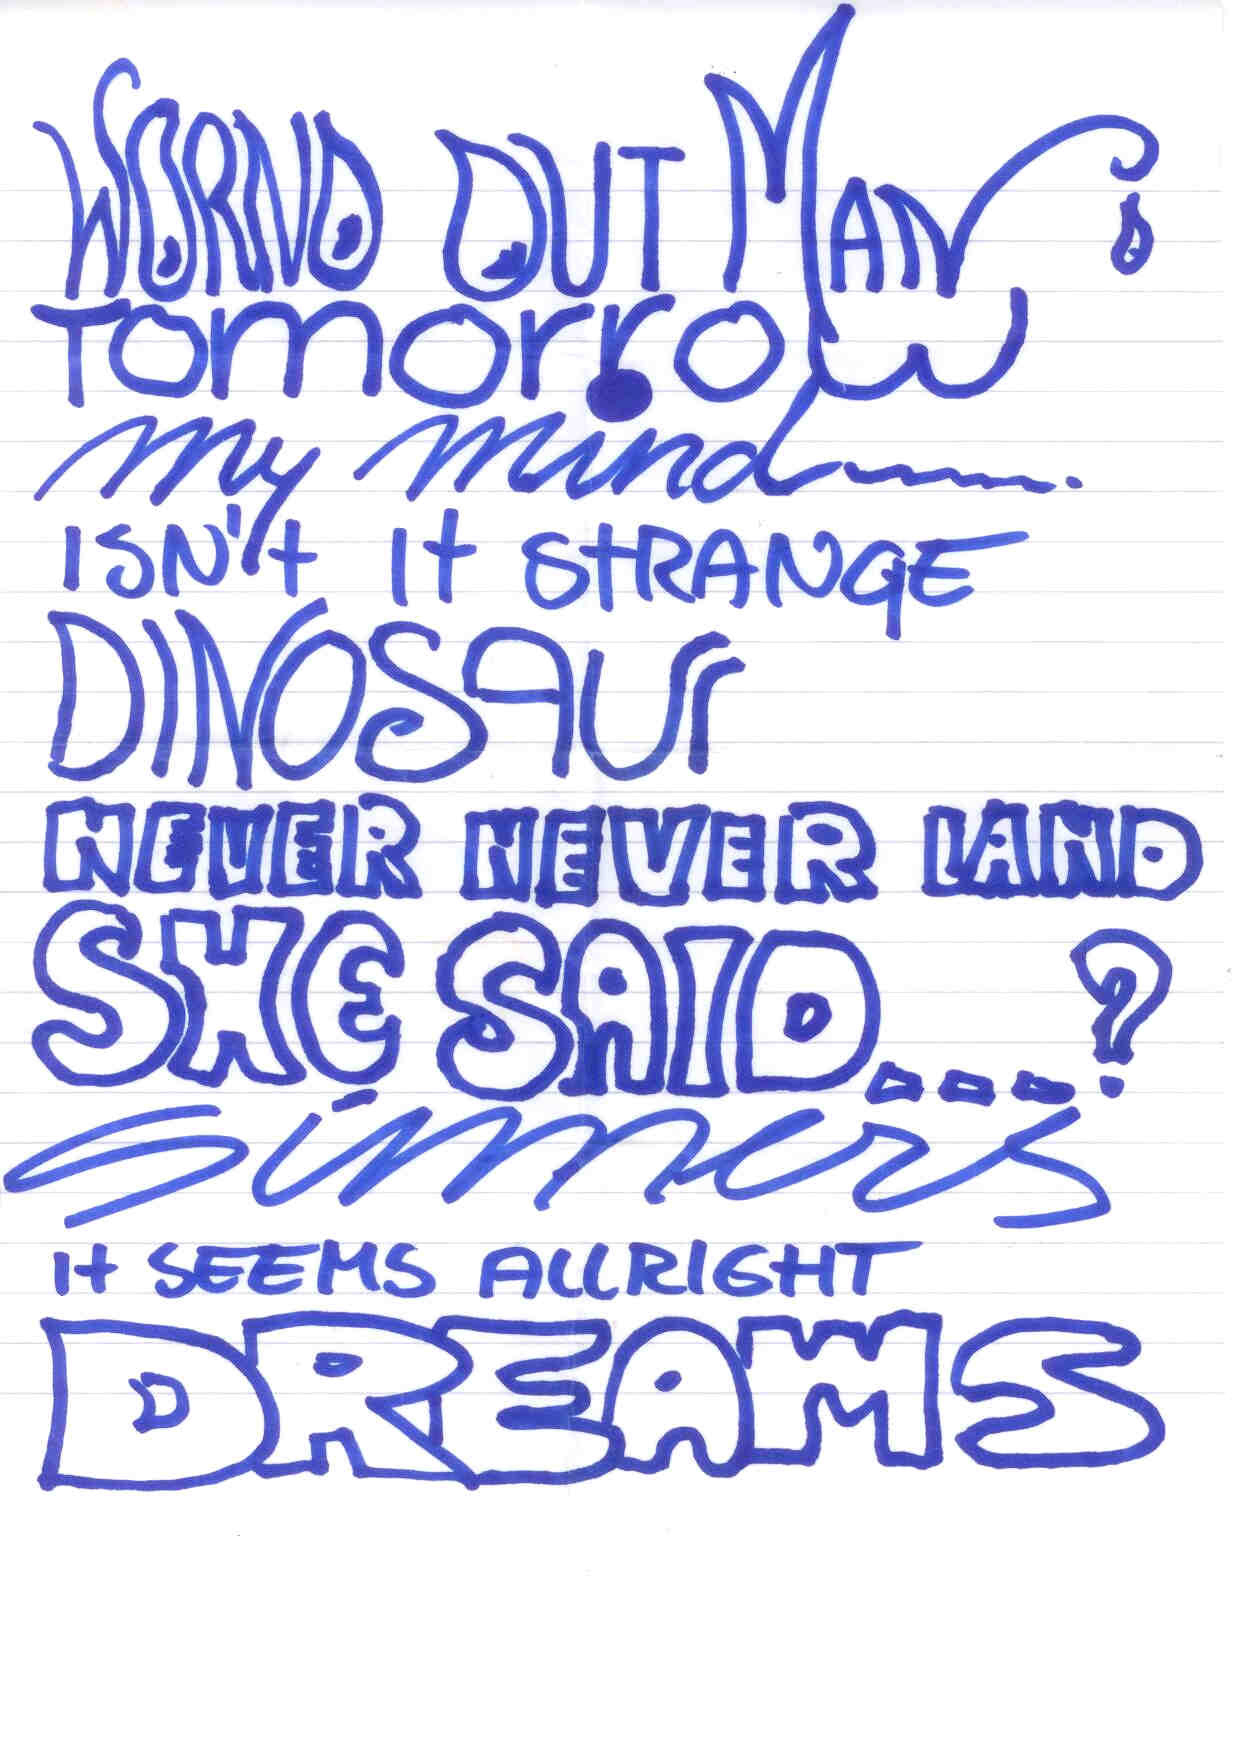 WORND OUT MAN
TOMORROW
my mind
ISN't It StRANGE
DINOSAUr
NEVER NEVER LAND
SHE SAID...?
sinners
It SEEMS ALLRIGHT
DREAMS